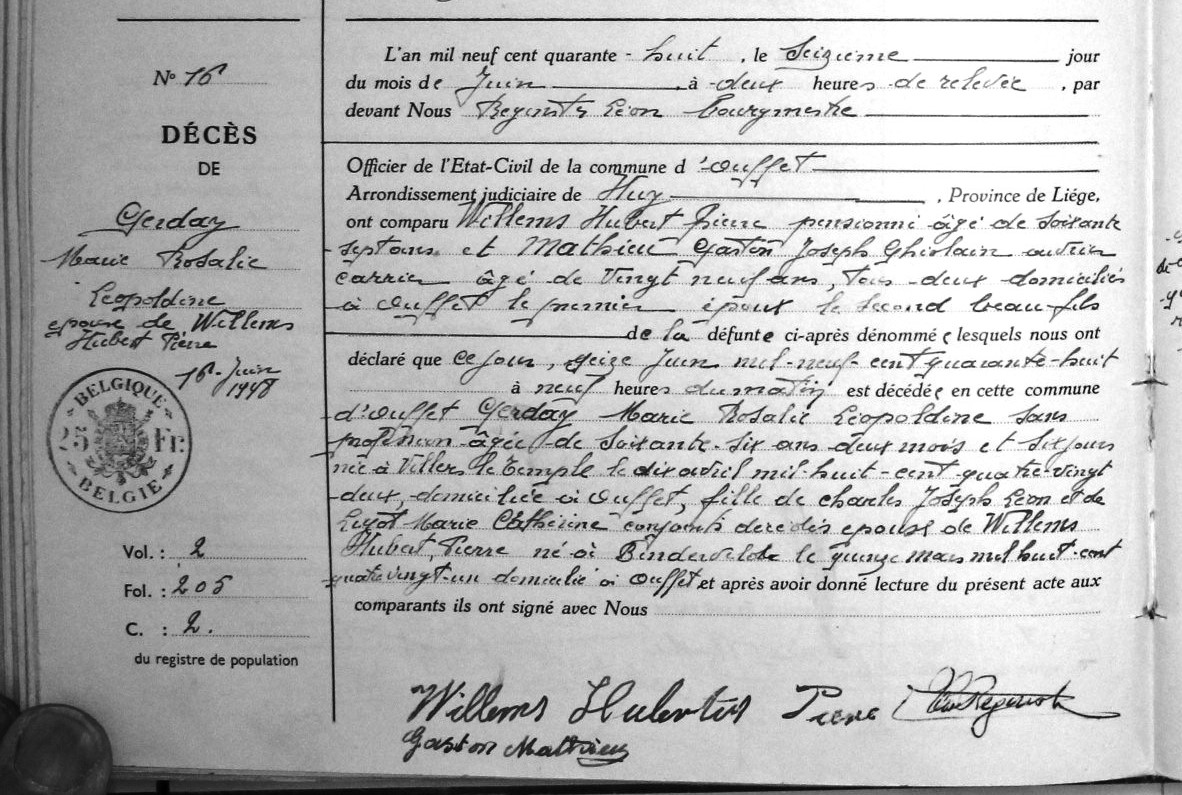 N° 16
DÉCÈS
DE
Gerday
Marie Rosalie
Leopoldine
epouse de Willems
Hubert Pierre
16 - Juin
1948
BELGIQUE
25 Fr.
BELGIE
Vol. : 2
Fol. : 205
C. : 2.
du registre de population
L'an mil neuf cent quarante - huit, le Seizième jour
du mois de Juin, à deux heures de relevée, par
devant Nous Léon bourgmestre
Officier de l'Etat-Civil de la commune d'Ouffet
Arrondissement judiciaire de Huy, Province de Liége,
ont comparu Willems Hubert Pierre pensionné âgé de soixante
sept ans et Mathieu Gaston Joseph Ghislain ouvrier
carrier âgé de vingt neuf ans, tous deux domiciliés
à Ouffet le premier époux le second beau-fils
de la défunte ci-après dénommée lesquels nous ont
déclaré que ce jour, seize Juin mil-neuf cent quarante-huit
à neuf heures du matin est décédée en cette commune
d'Ouffet Gerday Marie Rosalie Léopoldine sans
profession âgée de soixante-six ans deux mois et six jours
née à Villers le Temple le dix avril mil-huit-cent quatre-vingt
deux, domiciliée à Ouffet, fille de Charles Joseph Léon et de
Marie Catherine conjoints décédés epouse de Willems
Hubert, Pierre né à le quinze mars mil huit-cent
quatre vingt-un domicilié à Ouffet et après avoir donné lecture du présent acte aux
comparants ils ont signé avec Nous
Willems Hubertus Pierre
Gaston Mathieu